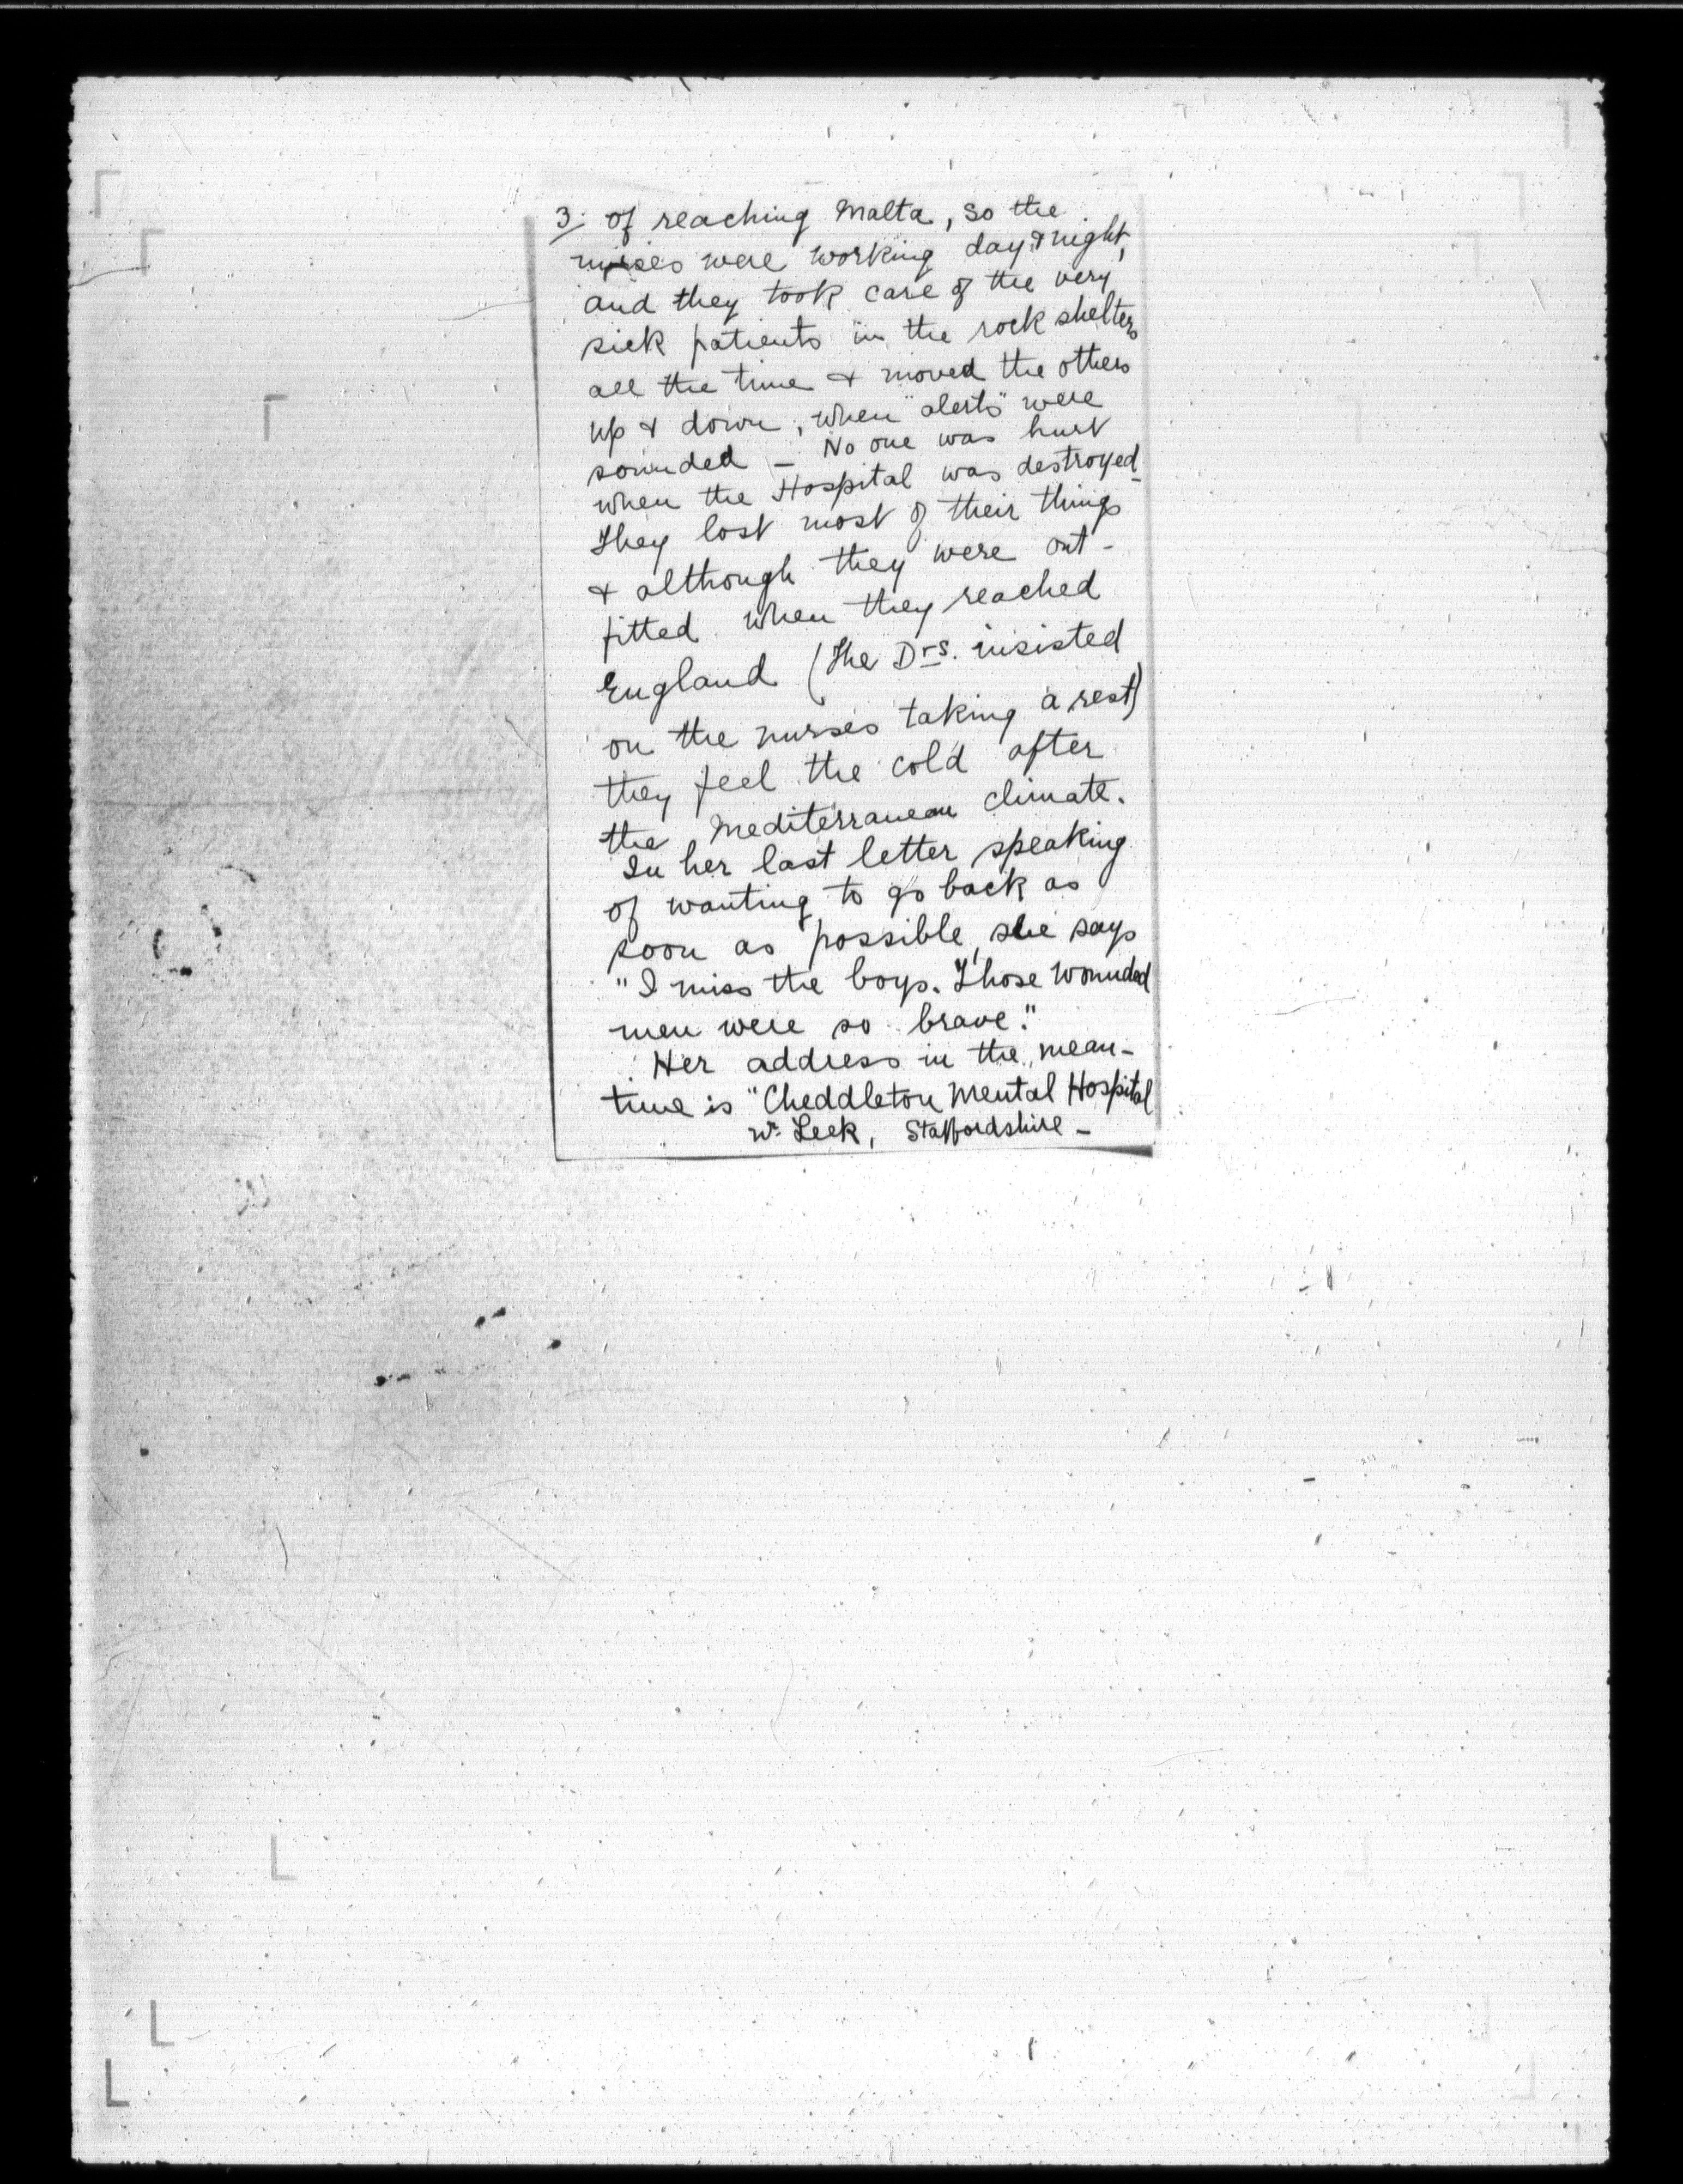 3. of reaching Malta, so the
nurses were working day & night,
and they took care of the very
sick patients in the rock shelters
all the time & moved the others
up & down, when "alerts" were
sounded – No one was hurt
when the Hospital was destroyed –
They lost most of their things
& although they were out-
fitted when they reached
England (The Drs. insisted
on the nurses taking a rest)
they feel the cold after
the Mediterranean climate.
In her last letter speaking
of wanting to go back as
soon as possible, she says
"I miss the boys. Those wounded
men were so brave."
Her address in the mean-
time is "Cheddleton Mental Hospital
Leek, Staffordshire –